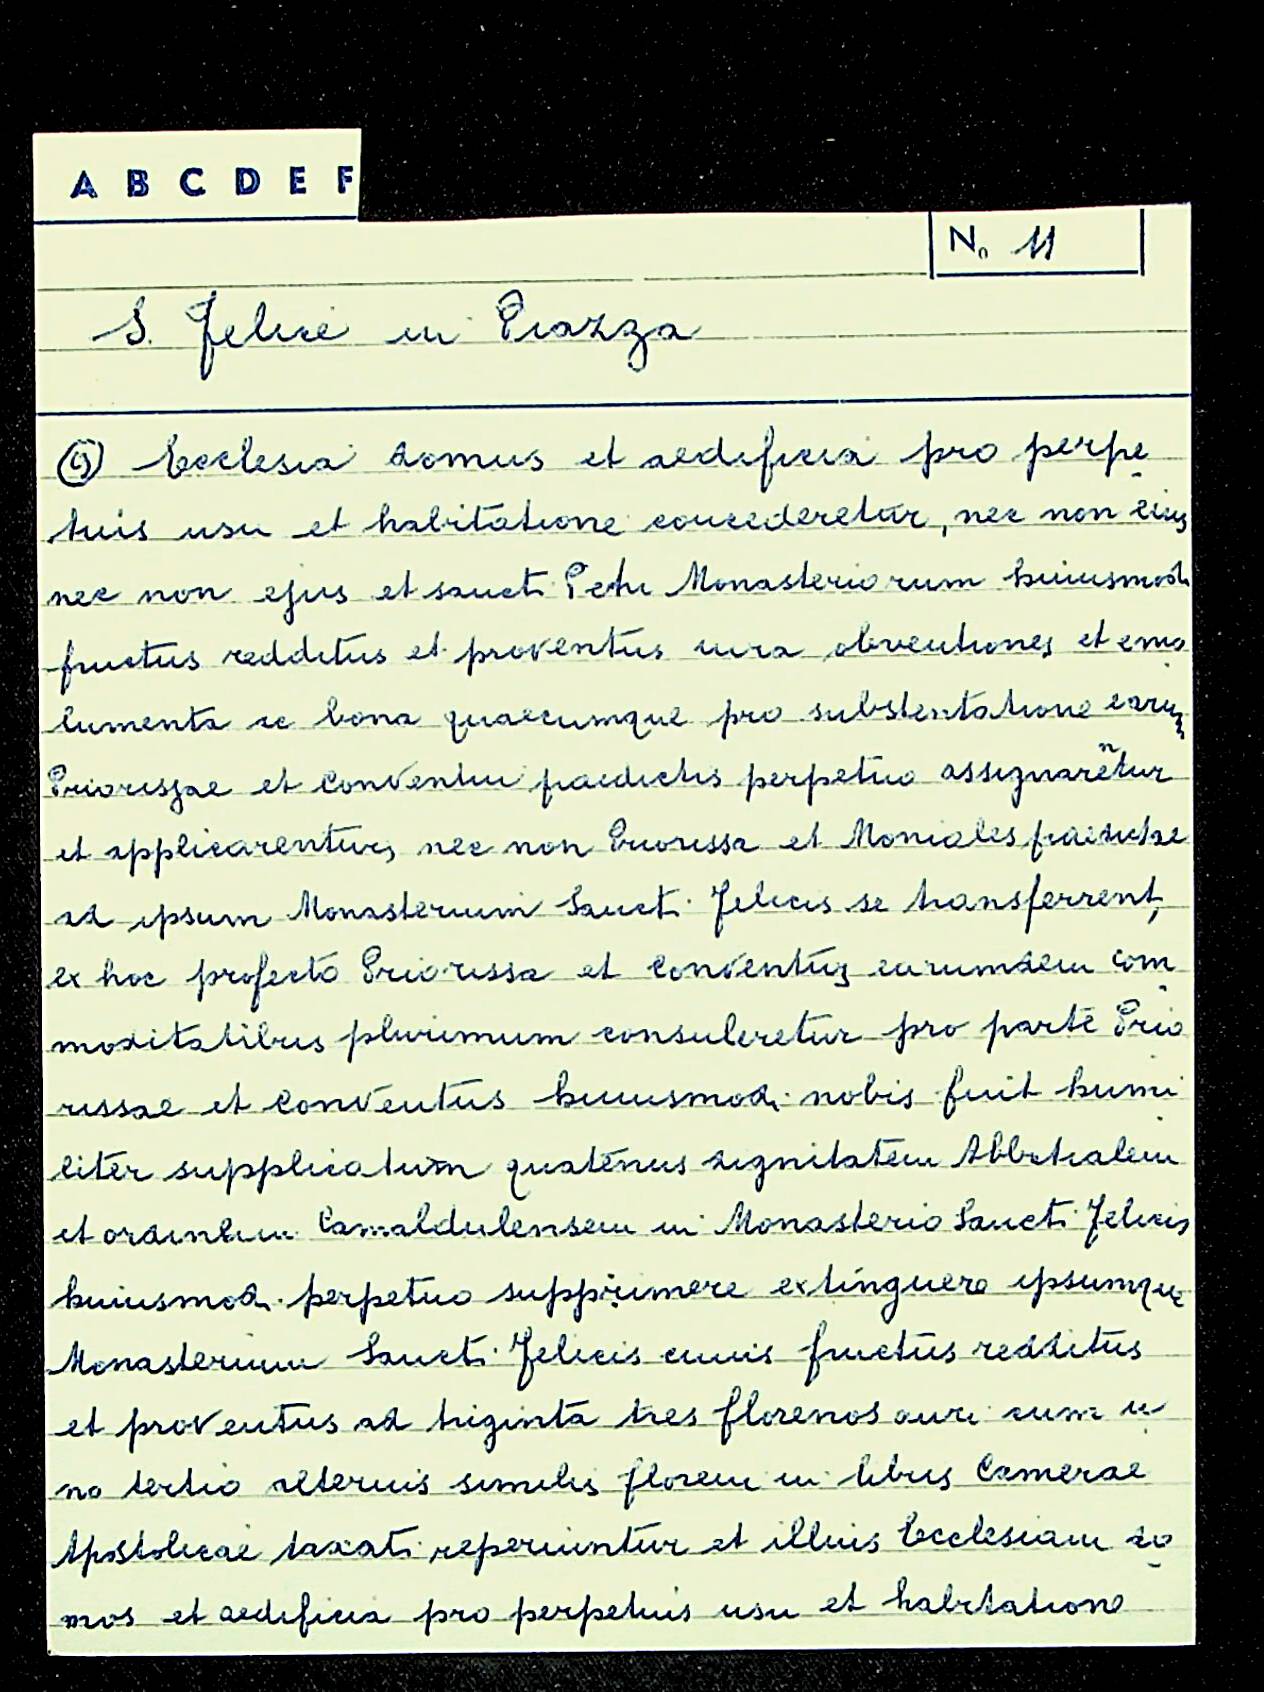 A B C D E F
N. 11
S. Felice in Piazza
(9) Ecclesia domus et aedificia pro perpe
tuis usu et habitatione concederetur, nec non eius
nec non ejus et sancti Petri Monasteriorum huiusmodi
fructus redditus et proventus iura obventiones et emo
lumenta ac bona quaecumque pro substentatione earum
Priorissae et Conventui praedictis perpetuo assignarentur
et applicarentur, nec non Priorissa et Moniales praedictae
ad ipsum Monasterium Sancti Felicis se transferrent,
ex hoc profecto Priorissa et Conventus earumdem com
moditatibus plurimum consuleretur pro parte Prio
rissae et Conventus huiusmodi nobis fuit humi
liter supplicatum quatenus dignitatem Abbatialem
et ordinem Camaldulensem in Monasterio Sancti Felicis
huiusmodi perpetuo supprimere extinguere ipsumque
Monasterium Sancti Felicis cuius fructus redditus
et proventus ad triginta tres florenos auri cum u
no tertio alterius similis floreni in libris Camerae
Apostolicae taxati reperiuntur et illius Ecclesiam do
mos et aedificia pro perpetuis usu et habitatione